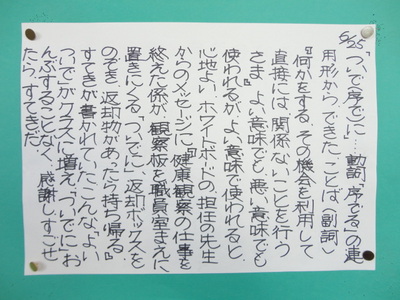 6/25「ついで序でに…動詞「序でる」の連
用形から、できたことば(副詞)
『何かをする、その機会を利用して
直接には関係ないことを行う
さま。よい意味でも、悪い意味でも
使われるが、よい意味で使われると、
心地よい。ホワイトボードの、担任の先生
からのメッセージに、『健康観察の仕事を
終えた係が、観察板を職員室まえに
置きにくる「ついでに」、返却ボックスを
のぞき、返却物があったら持ち帰る。』
すてきが書かれていた。こんな、「よい
ついで」がクラスに増え、「ついでに」お
んぶすることなく、感謝しすごせ
たら、すてきだ。